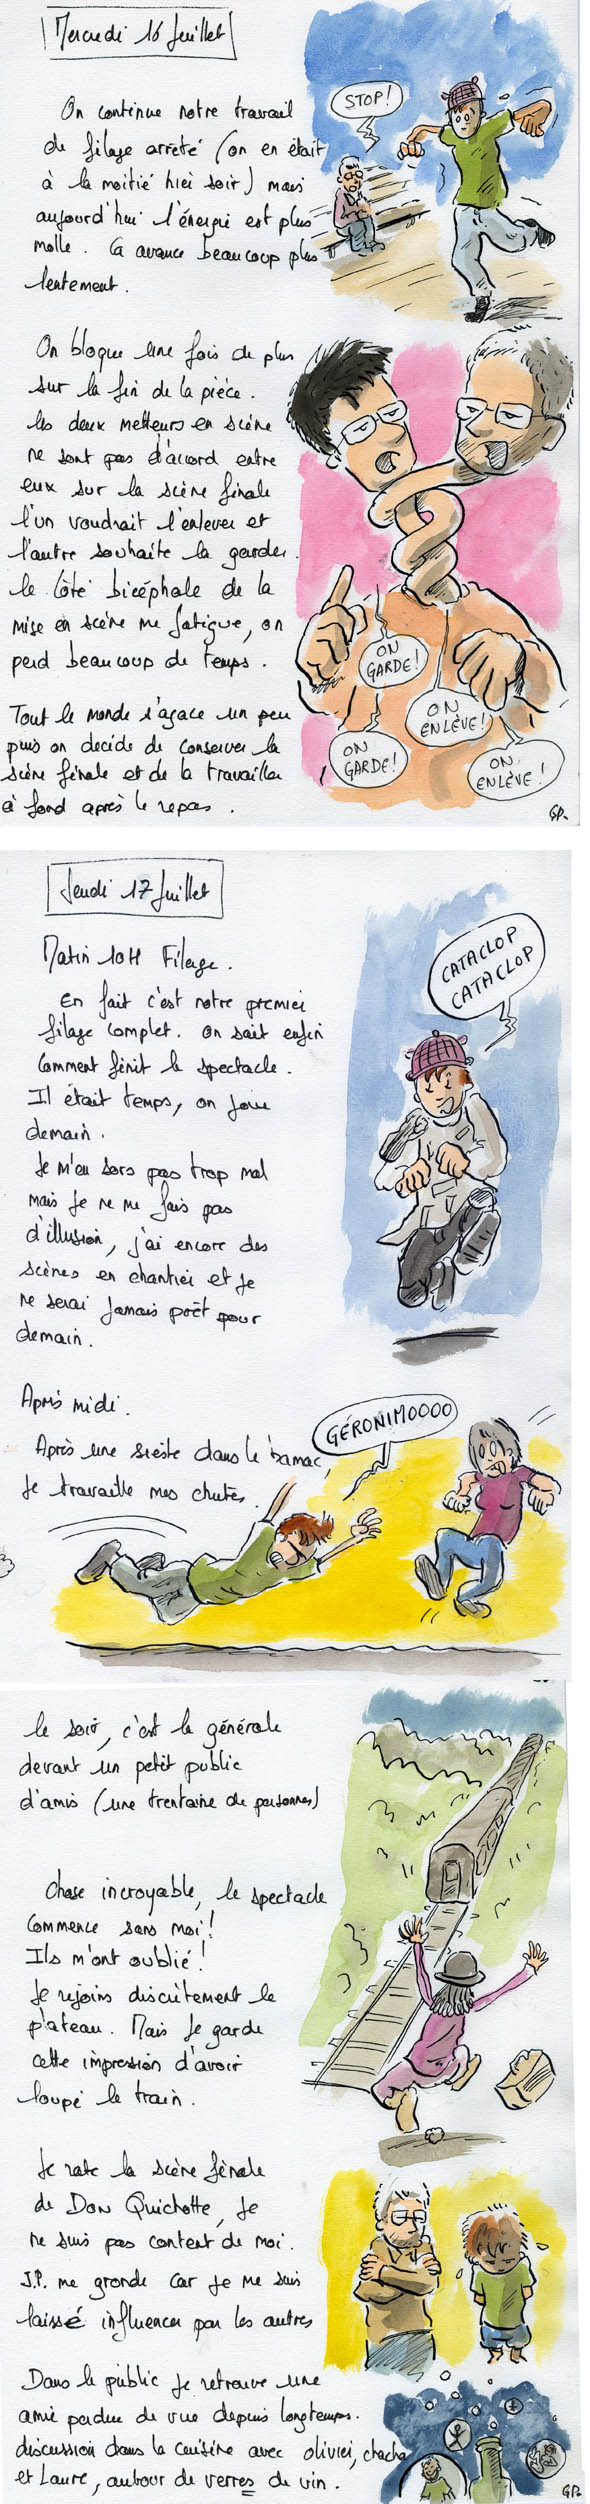 Mercredi 16 Juillet
On continue notre travail
de filage arrété (on en était
à la moitié hier soir) mais
aujourd'hui l'énergie est plus
molle. Ca avance beaucoup plus
lentement.
STOP!
On bloque une fois de plus
sur la fin de la pièce.
les deux metteurs en scène
ne sont pas d'accord entre
eux sur la scène finale
l'un voudrait l'enlever et
l'autre souhaite la garder.
le côté bicéphale de la
mise en scène me fatigue, on
perd beaucoup de temps.
Tout le monde s'agace un peu
puis on decide de conserver la
scène finale et de la travailler
à fond après le repas.
ON
GARDE!
ON
ENLÈVE!
ON
GARDE!
ON
ENLÈVE!
GP.
Jeudi 17 Juillet
Matin 10H Filage.
En fait c'est notre premier
filage complet. On sait enfin
comment finit le spectacle.
Il était temps, on joue
demain.
Je m'en sors pas trop mal
mais je ne me fais pas
d'illusion, j'ai encore des
scènes en chantier et je
ne serai jamais prêt pour
demain.
CATACLOP
CATACLOP
Après midi.
Après une sieste dans le hamac,
je travaille mes chutes.
GÉRONIMOOOO
le soir, c'est la générale
devant un petit public
d'amis (une trentaine de personnes)
Chose incroyable, le spectacle
commence sans moi!
Ils m'ont oublié!
Je rejoins discrètement le
plateau. Mais je garde
cette impression d'avoir
loupé le train.
Je rate la scène finale
de Don Quichotte, je
ne suis pas content de moi.
J.P. me gronde car je me suis
laissé influencer par les autres
Dans le public je retrouve une
amie perdue de vue depuis longtemps.
discussion dans la cuisine avec olivier, chacha
et Laure, autour de verres de vin.
GP.